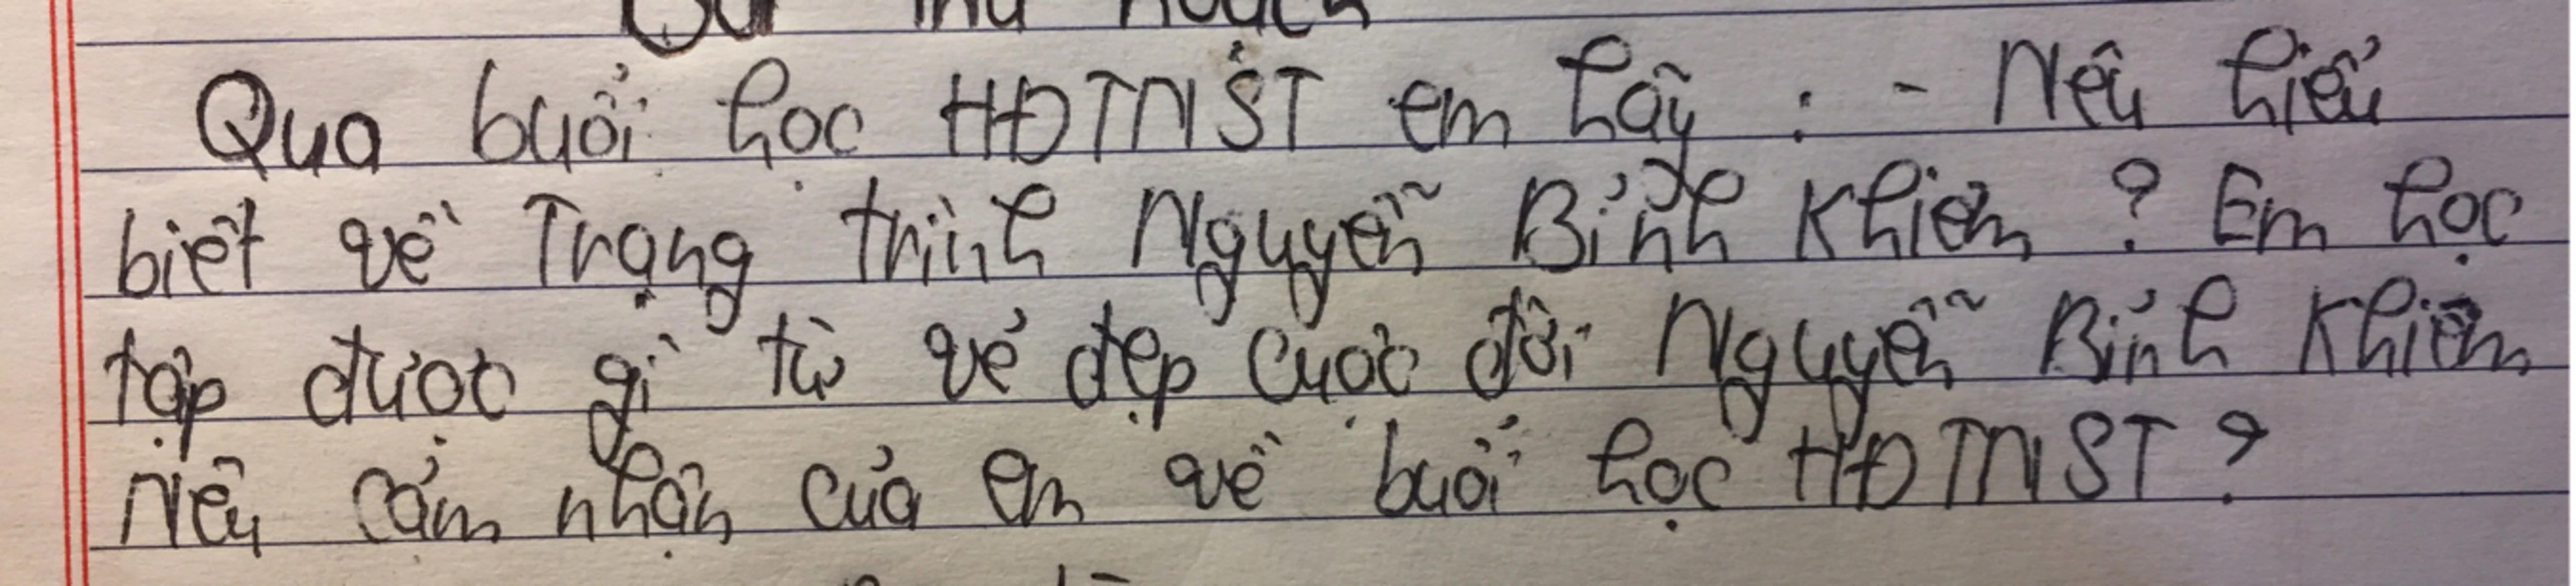 Bài thu hoạch
Qua buổi học HĐTNST em hãy : - Nêu hiểu
biết về Trạng trình Nguyễn Bỉnh Khiêm ? Em học
tập được gì từ vẻ đẹp cuộc đời Nguyễn Bỉnh Khiêm
Nêu cảm nhận của em về buổi học HĐTNST ?